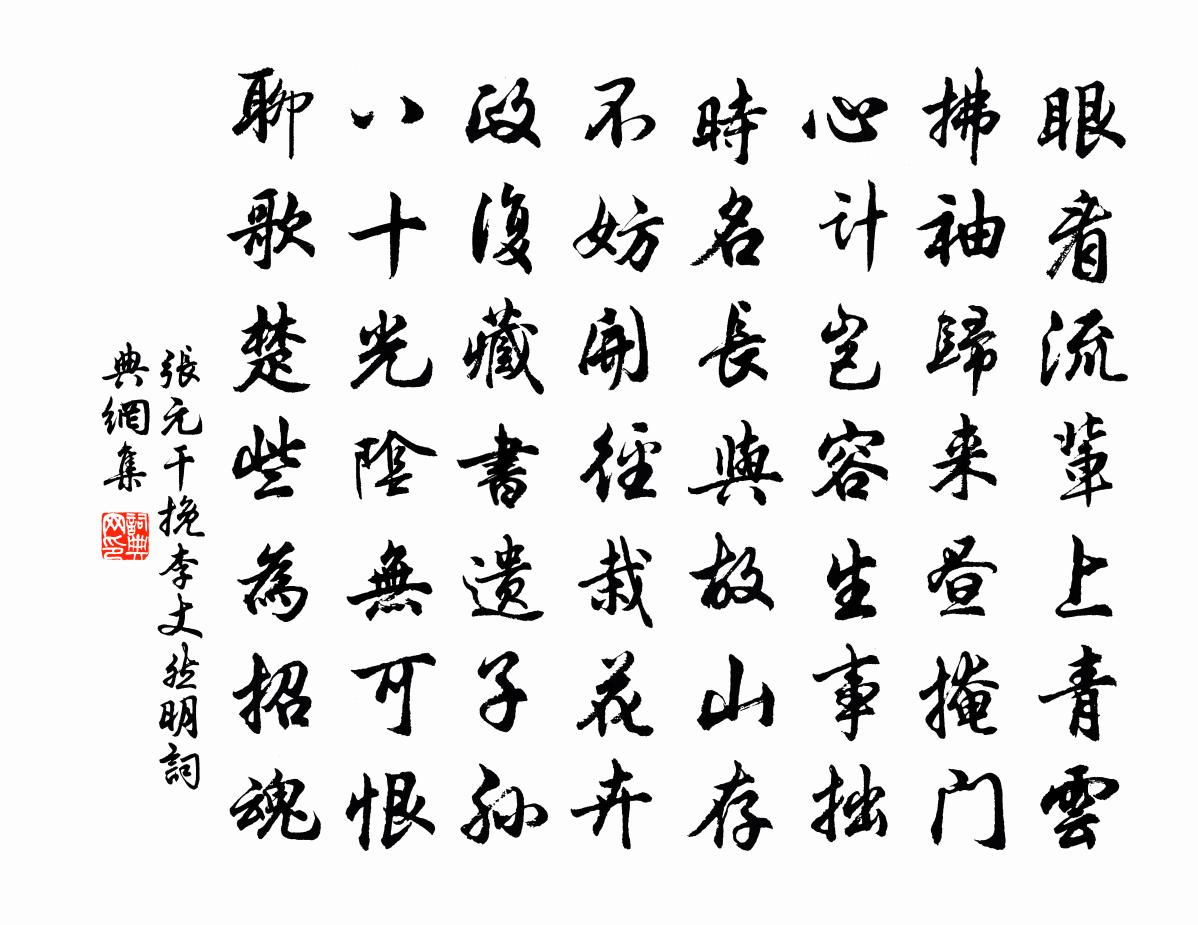 眼看流輩上青雲
拂袖歸来昼掩门
心计岂容生事拙
時名長與故山存
不妨開徑栽花卉
政復藏書遗子孙
八十光陰無可恨
聊歌楚些為招魂
張元干挽李丈然明詞
典網集
詞典网印